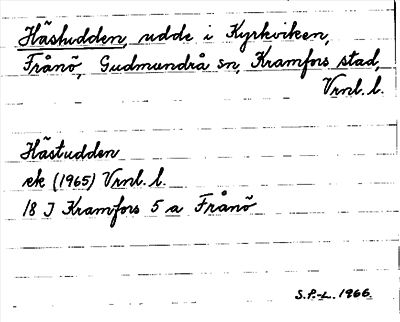 Hästudden, udde i Kyrkviken,
Frånö, Gudmundrå sn, Kramfors stad,
Vrnl. l.
Hästudden
ek (1965) Vrnl. l.
18 J Kramfors 5 a Frånö
S.P.-L. 1966.